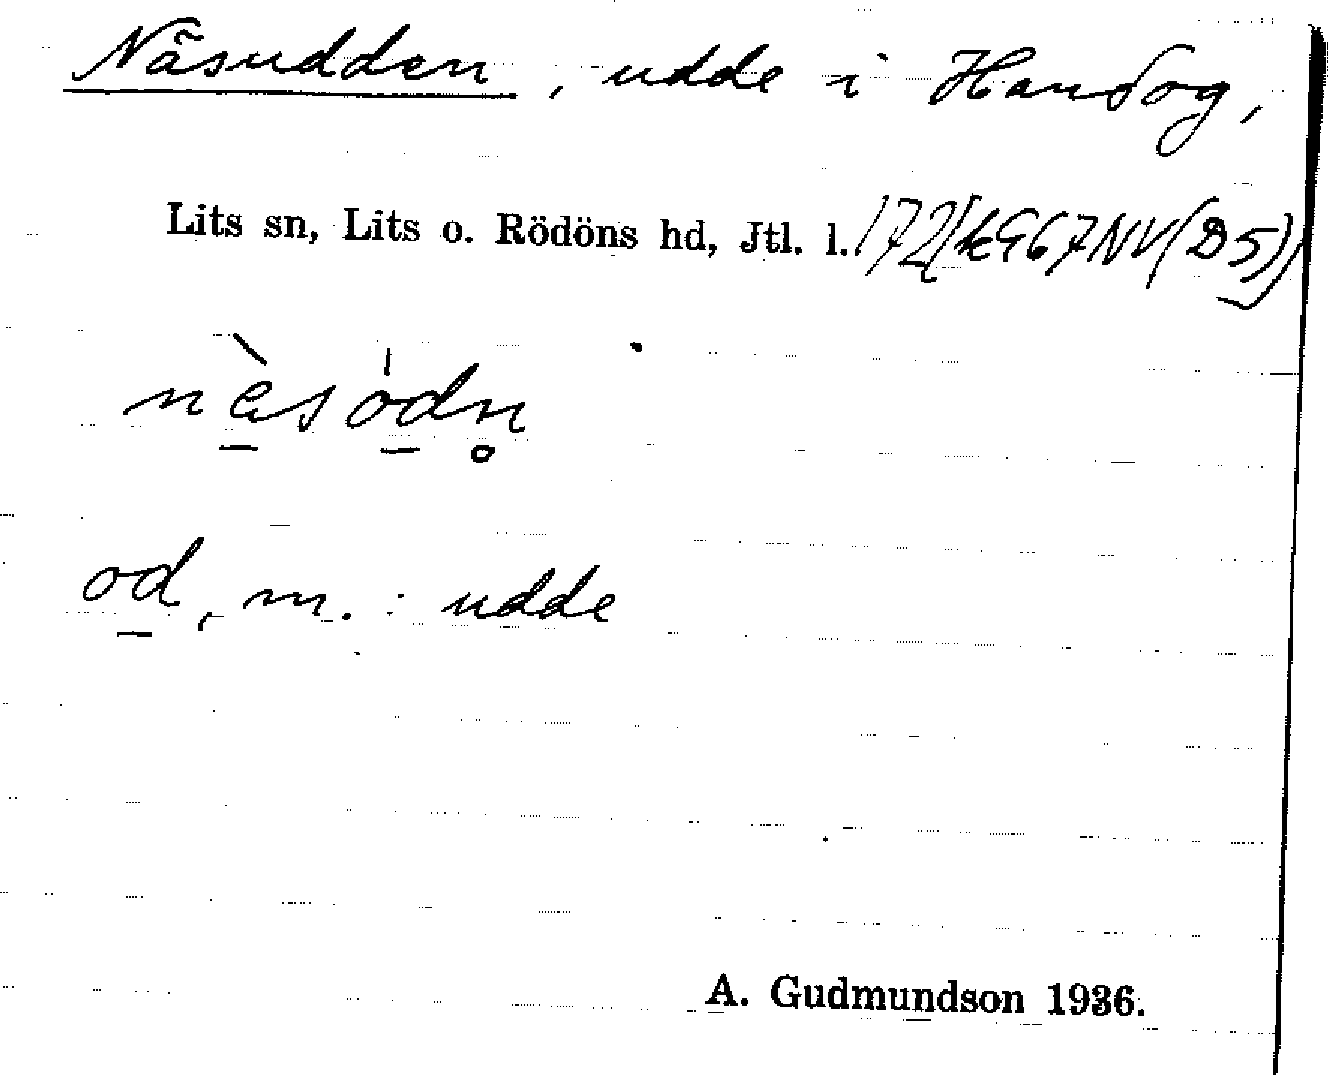 Näsudden, udde i Handog,
Lits sn, Lits o. Rödöns hd, Jtl. l.
nàsódn
od, m. : udde
A. Gudmundson 1936.